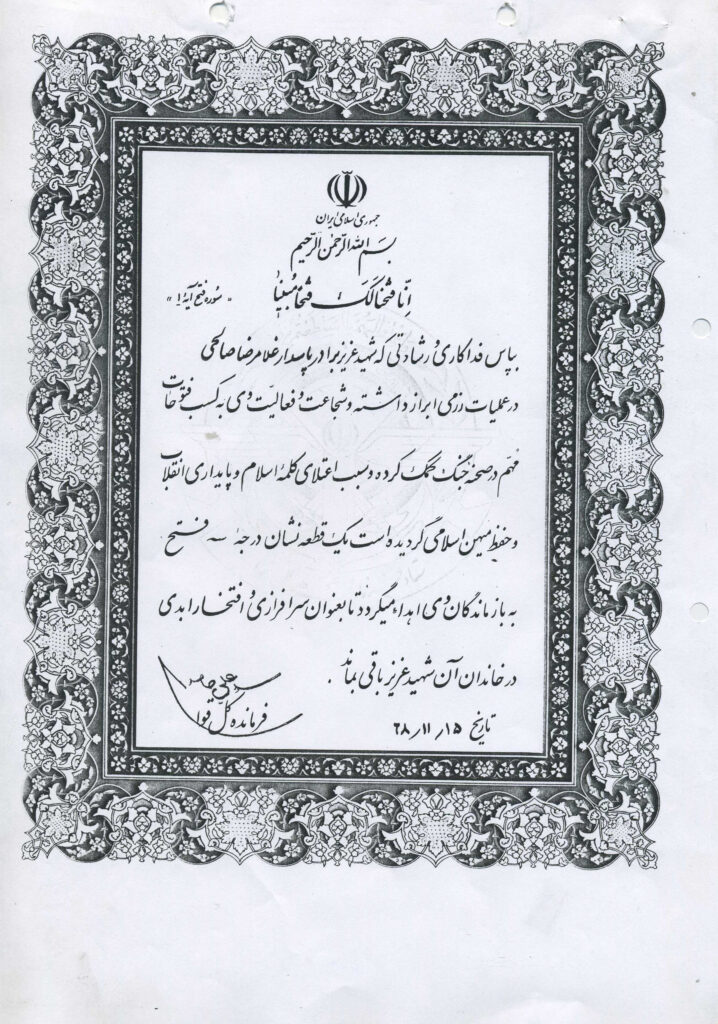 جمهوری اسلامی ایران
بسم الله الرحمن الرحیم
اِنّا فَتَحْنا لَکَ فَتْحاً مُبیناً " سوره فتح آیهٔ ۱ "
بپاس فداکاری و رشادتی که شهید عزیز برادر پاسدار غلامرضا صالحی
در عملیات رزمی ابراز داشته و شجاعت و فعالیت وی به کسب فتوحات
مهم در صحنه جنگ کمک کرده و سبب اعتلای کلمهٔ اسلام و پایداری انقلاب
و حفظ میهن اسلامی گردیده است یک قطعه نشان درجهٔ ~ فتح
به بازماندگان وی اهداء میگردد تا بعنوان سرافرازی و افتخار ابدی
در خاندان آن شهید عزیز باقی بماند .
سید علی خامنه
فرمانده کل قوا
تاریخ ۶۸/۱۱/۱۵